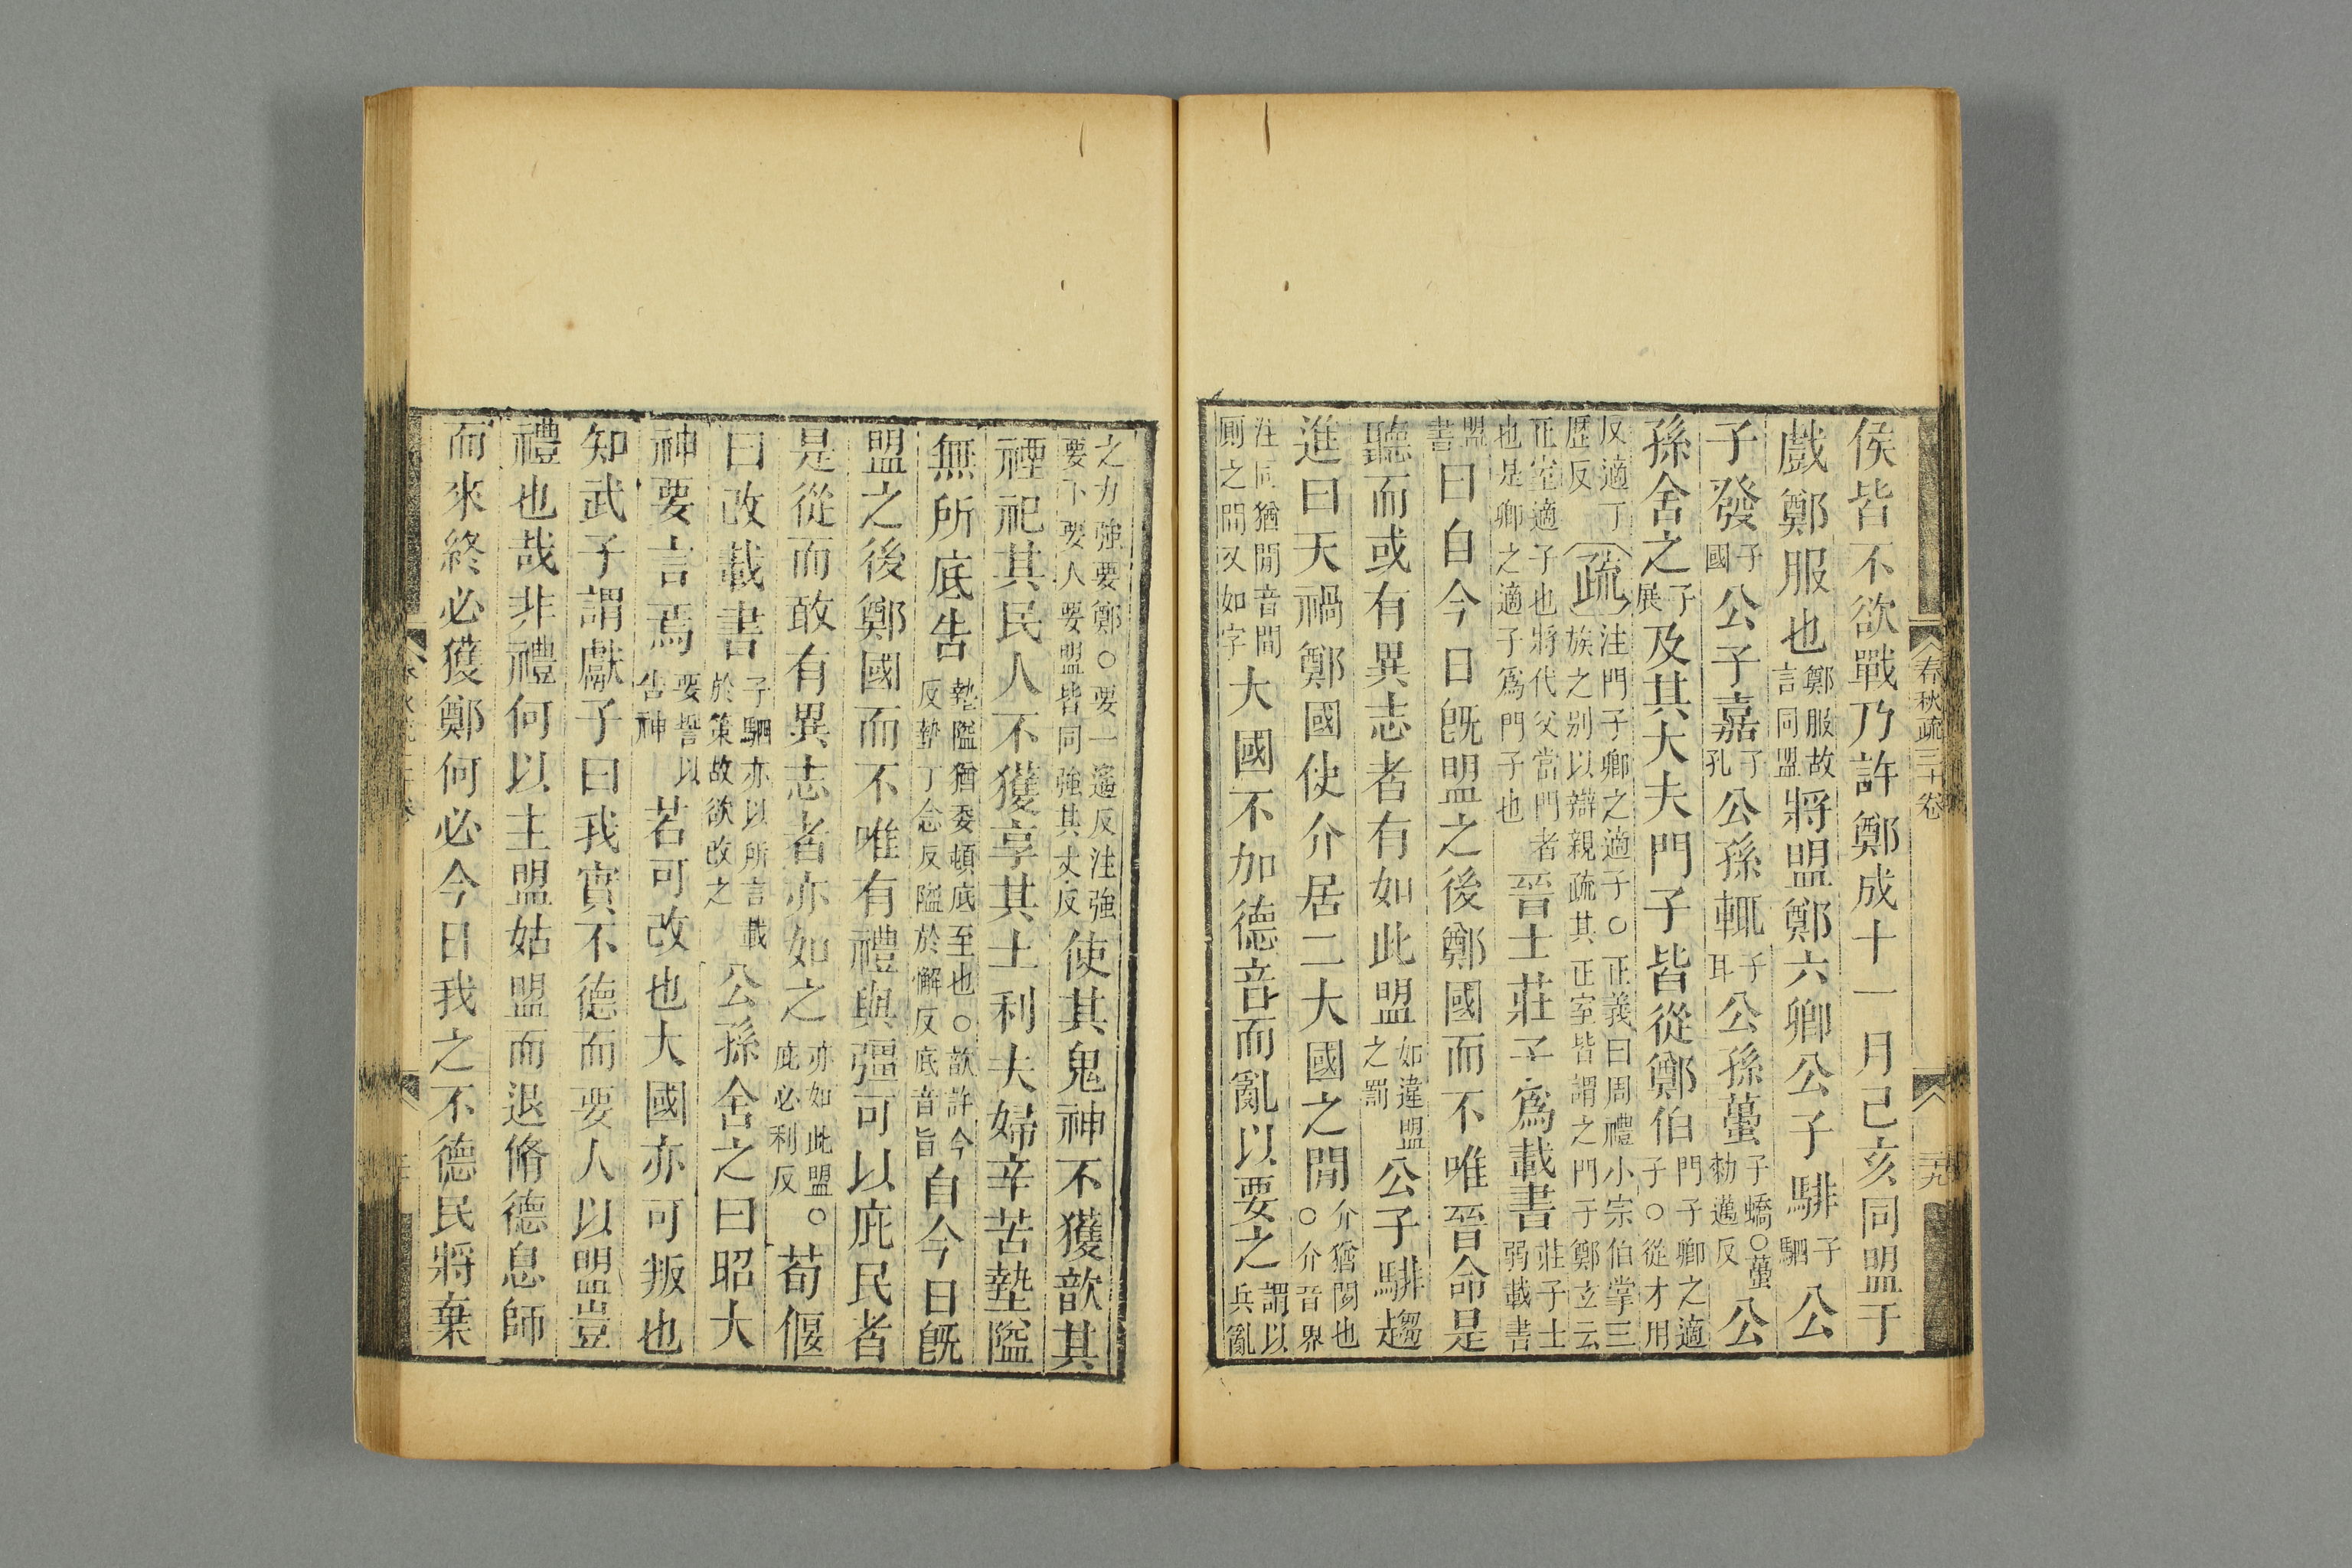 春秋疏三十卷
二九
侯皆不欲戰乃許鄭成十一月己亥同盟于
戲鄭服也鄭服故言同盟將盟鄭六卿公子騑子駟公
子發子國公子嘉子孔公孫輒子耳公孫蠆子蟜○蠆勑邁反公
孫舍之子展及其大夫門子皆從鄭伯門子卿之適子○從才用
反適丁歷反疏注門子卿之適子○正義曰周禮小宗伯掌三族之別以辯親疏其正室皆謂之門子鄭玄云
正室適子也將代父當門者也是卿之適子爲門子也晉士莊子爲載書莊子士弱載書
盟書曰自今日旣盟之後鄭國而不唯晉命是
聽而或有異志者有如此盟如違盟之罰公子騑趨
進曰天禍鄭國使介居二大國之閒介猶閒也○介音界
注同猶閒音閒厠之閒又如字大國不加德音而亂以要之謂以兵亂
之力強要鄭○要一遥反注強要下要人要盟皆同強其丈反使其鬼神不獲歆其
禋祀其民人不獲享其土利夫婦辛苦墊隘
無所底告墊隘猶委頓底至也○歆許今反墊丁念反隘於懈反底音旨自今日旣
盟之後鄭國而不唯有禮與彊可以庇民者
是從而敢有異志者亦如之亦如此盟○庇必利反荀偃
曰改載書子駟亦以所言載於策故欲改之公孫舍之曰昭大
神要言焉要誓以告神若可改也大國亦可叛也
知武子謂獻子曰我實不德而要人以盟豈
禮也哉非禮何以主盟姑盟而退脩德息師
而來終必獲鄭何必今日我之不德民將棄